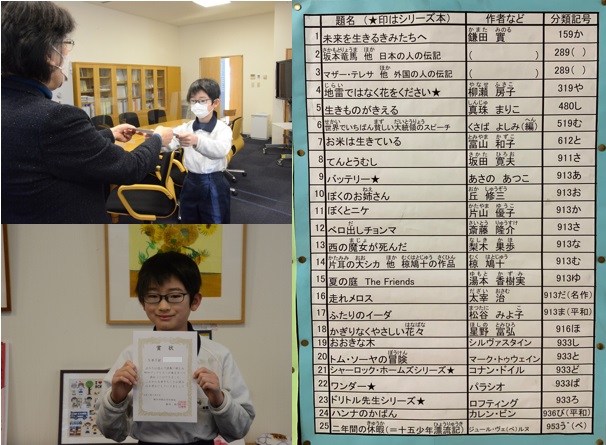 賞状
題名（★印はシリーズ本） 作者など 分類記号
1 未来を生きるきみたちへ 鎌田 實 159か
2 坂本竜馬 他 日本の人の伝記 （ ） 289（ ）
3 マザー・テレサ 他 外国の人の伝記 （ ） 289（ ）
4 地雷ではなく花をください★ 柳瀬 房子 319や
5 生きものがきえる 真珠 まりこ 480し
6 世界でいちばん貧しい大統領のスピーチ くさば よしみ（編） 519む
7 お米は生きている 富山 和子 612と
8 てんとうむし 坂田 寛夫 911さ
9 バッテリー★ あさの あつこ 913あ
10 ぼくのお姉さん 丘 修三 913お
11 ぼくとニケ 片山 優子 913か
12 ベロ出しチョンマ 斎藤 隆介 913さ
13 西の魔女が死んだ 梨木 果歩 913な
14 片耳の大シカ 他 椋鳩十の作品 椋 鳩十 913む
15 夏の庭 The Friends 湯本 香樹実 913ゆ
16 走れメロス 太宰 治 913だ（名作）
17 ふたりのイーダ 松谷 みよ子 913ま（平和）
18 かぎりなくやさしい花々 星野 富弘 916ほ
19 おおきな木 シルヴァスタイン 933し
20 トム・ソーヤの冒険 マーク・トウェイン 933と
21 シャーロック・ホームズシリーズ★ コナン・ドイル 933ど
22 ワンダー★ パラシオ 933ぱ
23 ドリトル先生シリーズ★ ロフティング 933ろ
24 ハンナのかばん カレン・ビン 936び（平和）
25 二年間の休暇（＝十五少年漂流記） ジュール・ヴェ（ベ）ルヌ 953う゛（べ）